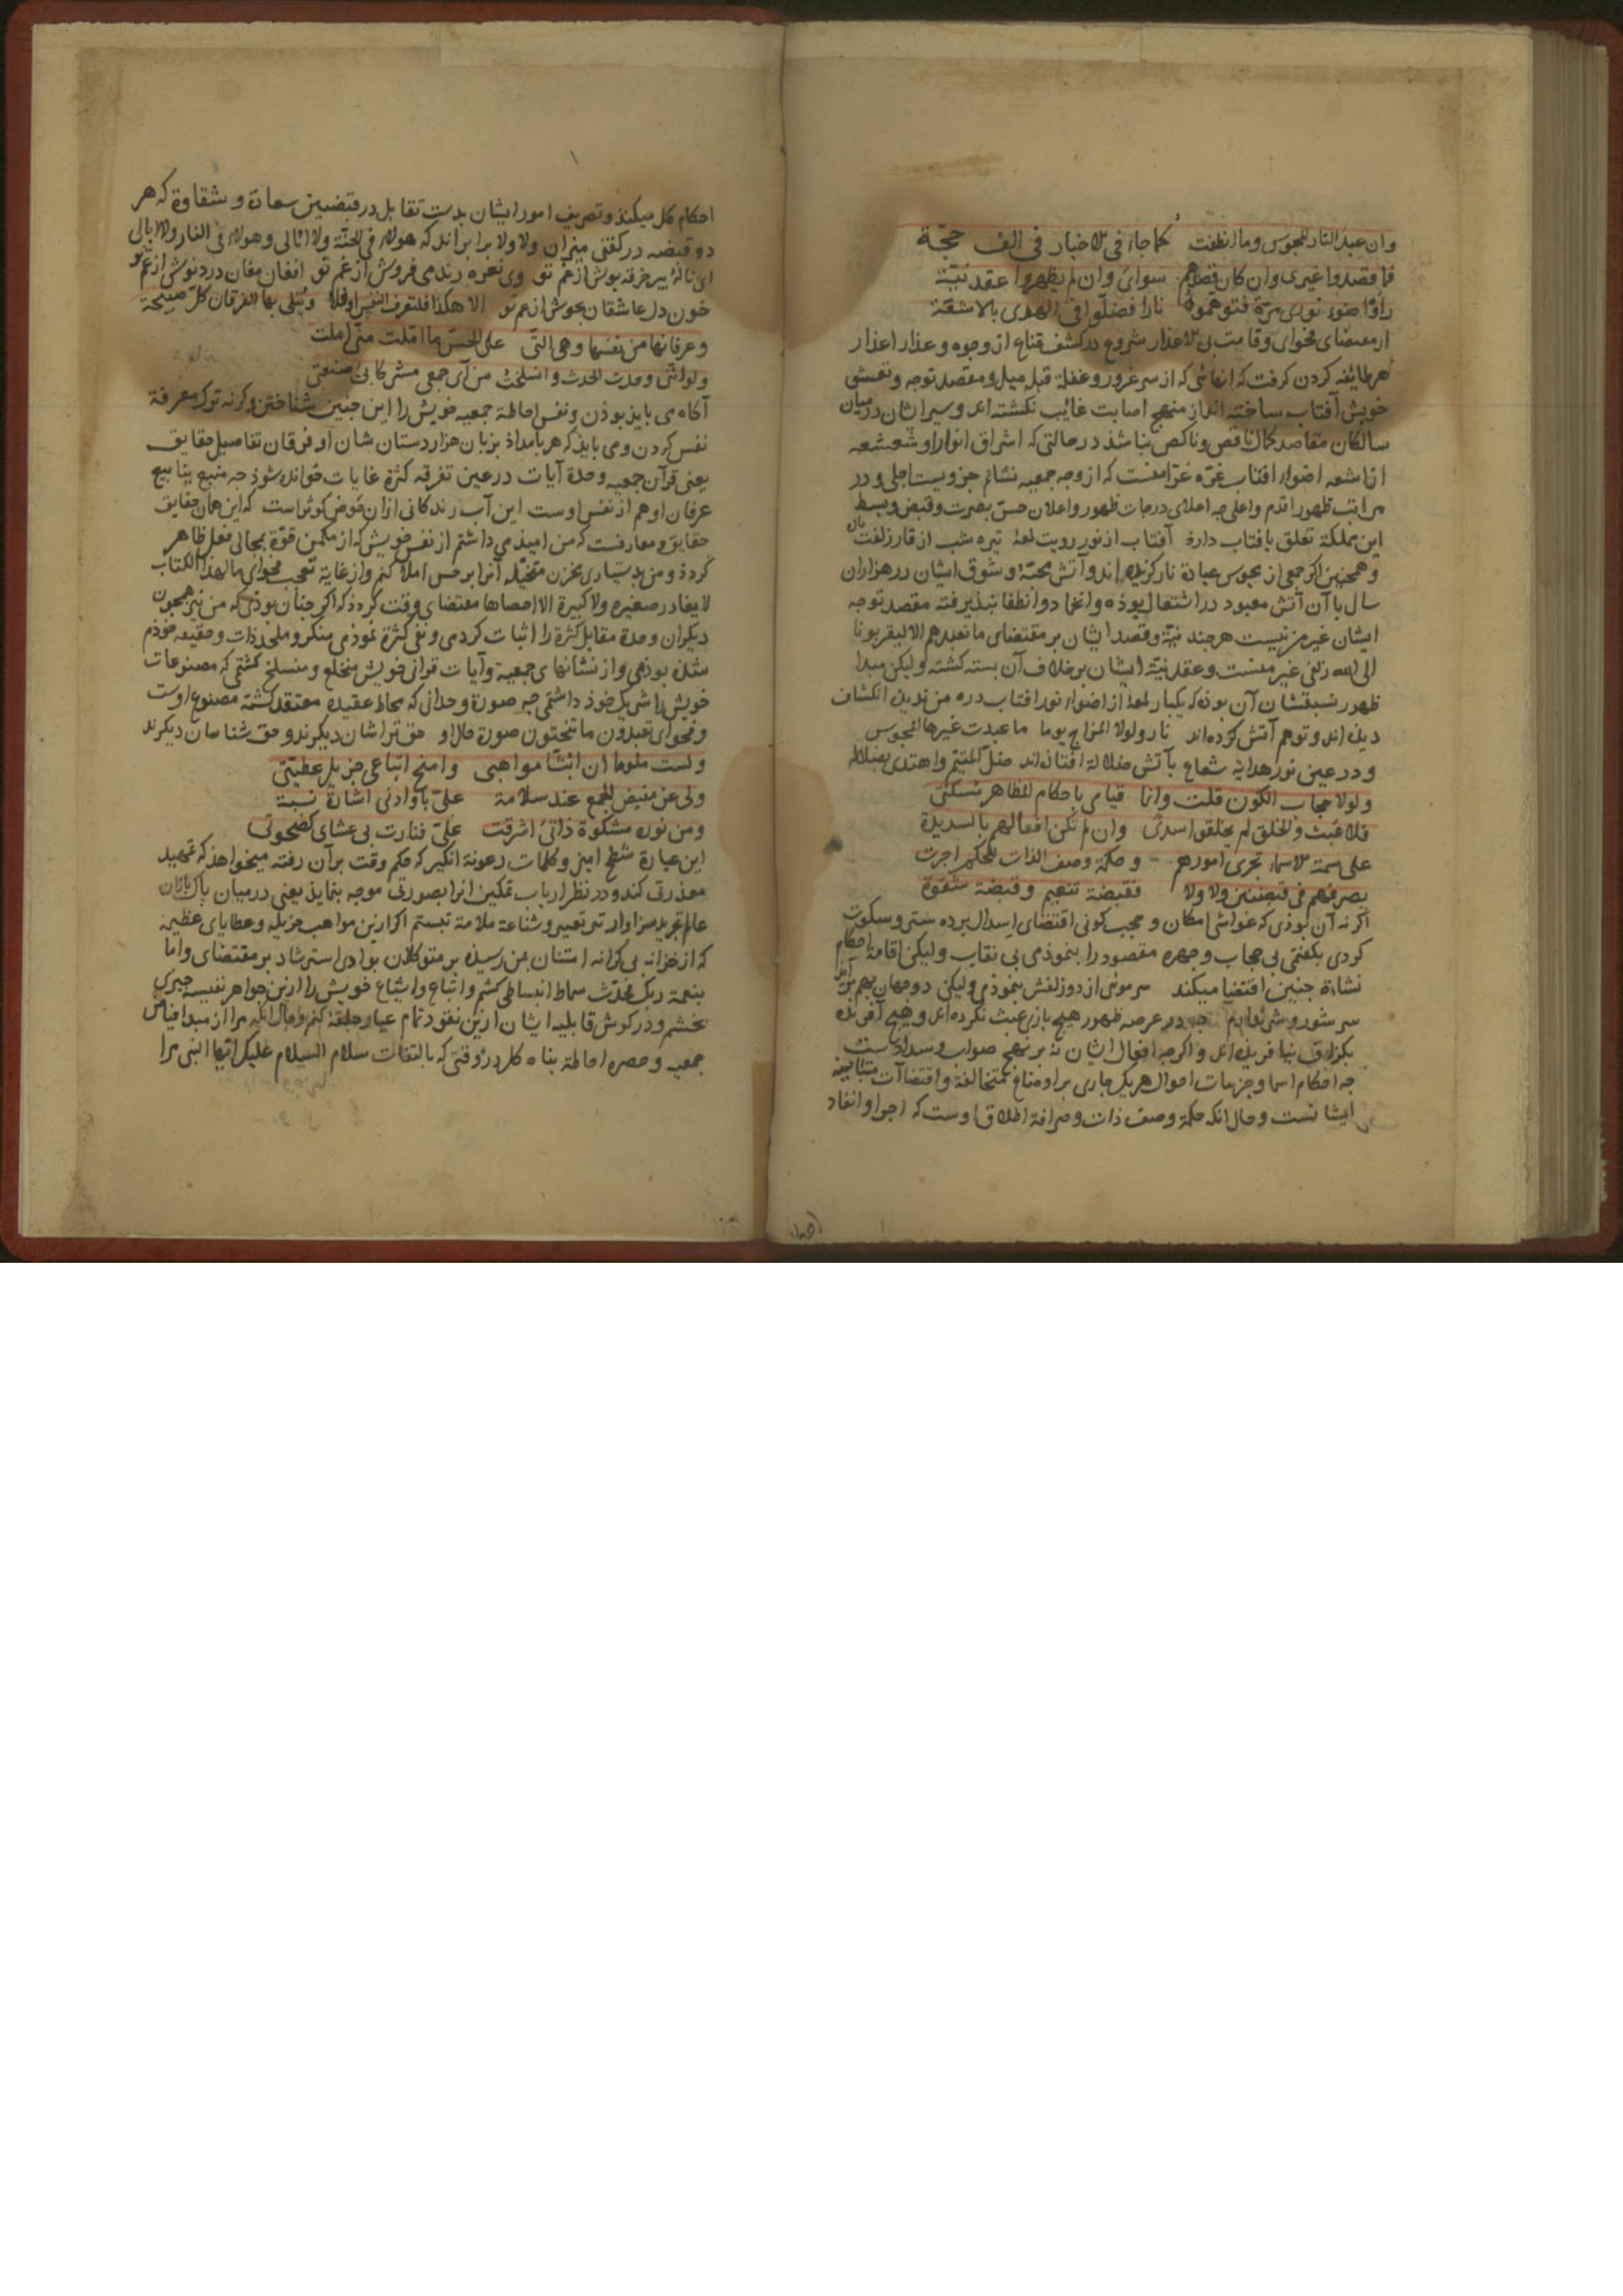 وان عبد النار المجوس وما انطفت كما جاء فی الاخبار فی الف حجّة
فما قصدوا غیری وان كان قصدهم سوائ وان لم یظهروا عقد نیّة
راوا ضوء نوری مرّة فتوهموه نارا فضلّوا فی الهدی بالاشعّة
از مقتضای فحوای وقامت بی الاعذار شروع در كشف قناع از وجوه وعذار اعذار
هر طائفه كردن كرفت كه انها نی كه از سر غرور وغفلة قبله میل ومقصد توجه وتعشق
خویش آفتاب ساخته اند از منهج اصابت غائب نكشته اند وسیر ایشان درمیان
سالكان مقاصد كمال ناقص وناكص نباشد در حالتی كه اشراق انوار او شعشعه
از اشعه اضواء افتاب غرّه غرّا منست كه از وجه جمعیه نشائم جزویست اجلی ودر
مراتب ظهور اقدم واعلی جه اعلای درجات ظهور واعلان حسن بصرت وقبض وبسط
این مملكة تعلق بافتاب دارد آفتاب از نور رویت لمعهٔ تیره شب از قار زلفت
وهمچنین اكر جمعی از مجوس عبادة نار كزیده اند وآتش محبّة وشوق ایشان در هزاران
سال با آن آتش معبود در اشتعال بوذه وانخماد وانطفا نبذیرفته مقصد توجه
ایشان غیر من نیست هرچند نیّة وقصد ایشان بر مقتضای ما نعبدهم الا لیقربونا
الی الله زلفی غیر منست وعقد نیّة ایشان بر خلاف آن بسته كشته ولیكن مبدا
ظهور نسبتشان آن بوذه كه یكبار لمعهٔ از اضواء نور افتاب دره من بدیده انكشاف
دیده اند وتوهم آتش كرده اند نار ولولا المزاج یوما ما عبدت غیرها المجوس
ودر عین نور هدایه شعاع بآتش ضلالة افتاده اند ضلّ المتیّم واهتدی بضلاله
ولولا حجاب الكون قلت وانّما قیامی باحكام المظاهر مُسكتی
فلا عَبث والخلق لم یخلقوا سدًی وان لم تكن افعالهم بالسدیدة
علی سمة الاسماء تجری امورهم وحكمة وصف الذات للحكم اجرت
یصرفهم فی قبضتین ولا ولا فقبضة تنعیم وقبضة شقوة
اكر نه آن بوذی كه غواشی امكان وحجب كونی اقتضای اسدال برده ستر وسكوت
كردی بكفتمی بی حجاب وچهره مقصود را بنموذمی بی نقاب ولیكن اقامة احكام
نشاة چنین اقتضا میكند سر موئی از دو زلفش بنموذمی ولیكن دو جهان بهم برآید
سر شور وشر ندارم جه در عرصه ظهور هیچ بازی عبث نكرده اند وهیچ آفریده
بكزاف نیافریده اند واكرچه افعال ایشان نه بر نهج صواب وسداد است
جه احكام اسما وجزییات احوال هریك جاری بر اوضاع متخالفة واقتضاآت متباینه
ایشانست وحال انكه حكمة وصف ذات وصرافة اطلاق اوست كه اجرا وانفاد
احكام كل میكند وتصریف امور ایشان بدست تقابل در قبضتین سعادة وشقاوة كه هر
دو قبضه در كفتی میزان ولا ولا برابراند كه هولاء فی الجنّة ولا ابالی وهولاء فی النار ولا ابالی
ای نالهٔ پیر خرقه بوش از غم تو وی نعره رند می فروش از غم تو افغان مغان درد نوش از غم تو
خون دل عاشقان بجوش از غم تو الا هكذا فلتعرف النفس او فلا ویُتلی بها الفرقان كلّ صبیحة
وعرفانها من نفسها وهی التی علی الحسّ ما امّلت منّی املت
ولو اننی وحدت الحدت وانسلخت من آی جمعی مشركا بی صنعتی
آكاهی باید بوذن ونفس احاطة جمعیه خویش را این چنین شناختن وكرنه ترك معرفة
نفس كردن ومی باید كه هر بامداذ بزبان هزار دستان شان او فرقان تفاصیل حقایق
یعنی قرآن جمعیه وحدة آیات در عین تفرقه كثرة غایات خوانده شوذ جه منبع ینابیع
عرفان او هم از نفس اوست این آب زندكانی ازان حَوض كوثر است كه این همان حقایق
حقایق ومعارفست كه من امیذ می داشتم از نفس خویش كه از مكمن قوّة بمجالی فعل ظاهر
كردذ ومن بدستیاری مخزن متخیّله آنرا بر حس املا كنم واز غایة تعجب فحوای مالهذا الكتاب
لا یغادر صغیره ولا كبیرة الا احصاها مقتضای وقت كردذ كه اكر چنان بوذی كه من نیز همچون
دیكران وحدة مقابل كثرة را اثبات كردمی ونفی كثرة نموذمی منكر وملحد ذات وحقیقه خوذم
شده بوذمی واز نشانهای جمعیه وآیات قرانی خویش منخلع ومنسلخ كشتمی كه مصنوعات
خویش را شریك خوذ داشتمی جه صورة وحدانی كه محاط عقیده معتقد كشته مصنوع اوست
وفحوای تعبدون ما تنحتون صورة حال او حق تراشان دیكرند وحق شناسان دیكرند
ولست ملوما ان ابثّ مواهبی وامنح اتباعی جزیل عطیّتی
ولی من مفیض الجمع عند سلامه علیّ باو ادنی اشارة نسبة
ومن نوره مشكوة ذاتی اشرقت علیّ فنارت بی عشای كضحوتی
این عبارة شطح امیز وكلمات رعونة انكیز كه حكم وقت بر آن رفته میخواهذ كه تمهید
معذرتی كند ودر نظر ارباب تمكین انرا بصورتی موجه بنمایذ یعنی درمیان پاك بازان
عالم تجرید سزاوار تیر تعییر وشناعة ملامة نیستم اكر ازین مواهب جزیله وعطایای عظیمه
كه از خزانه بی كرانه امتنان بمن رسیده بر متوكلان بوادی استرشاد بر مقتضای واما
بنعمة ربك فحدّث سماط انبساطی كشم واتباع واشیاع خویش را ازین جواهر نفیسه چیزی
بخشم ودر كوش قابلیه ایشان ازین نقود تمام عیار حلقهٔ كنم وحال آنكه مرا از مبدا فیاض
جمعیه وحصره احاطة بناه كل در وقتی كه بالتفات سلام السلام علیك ایها النبی مرا